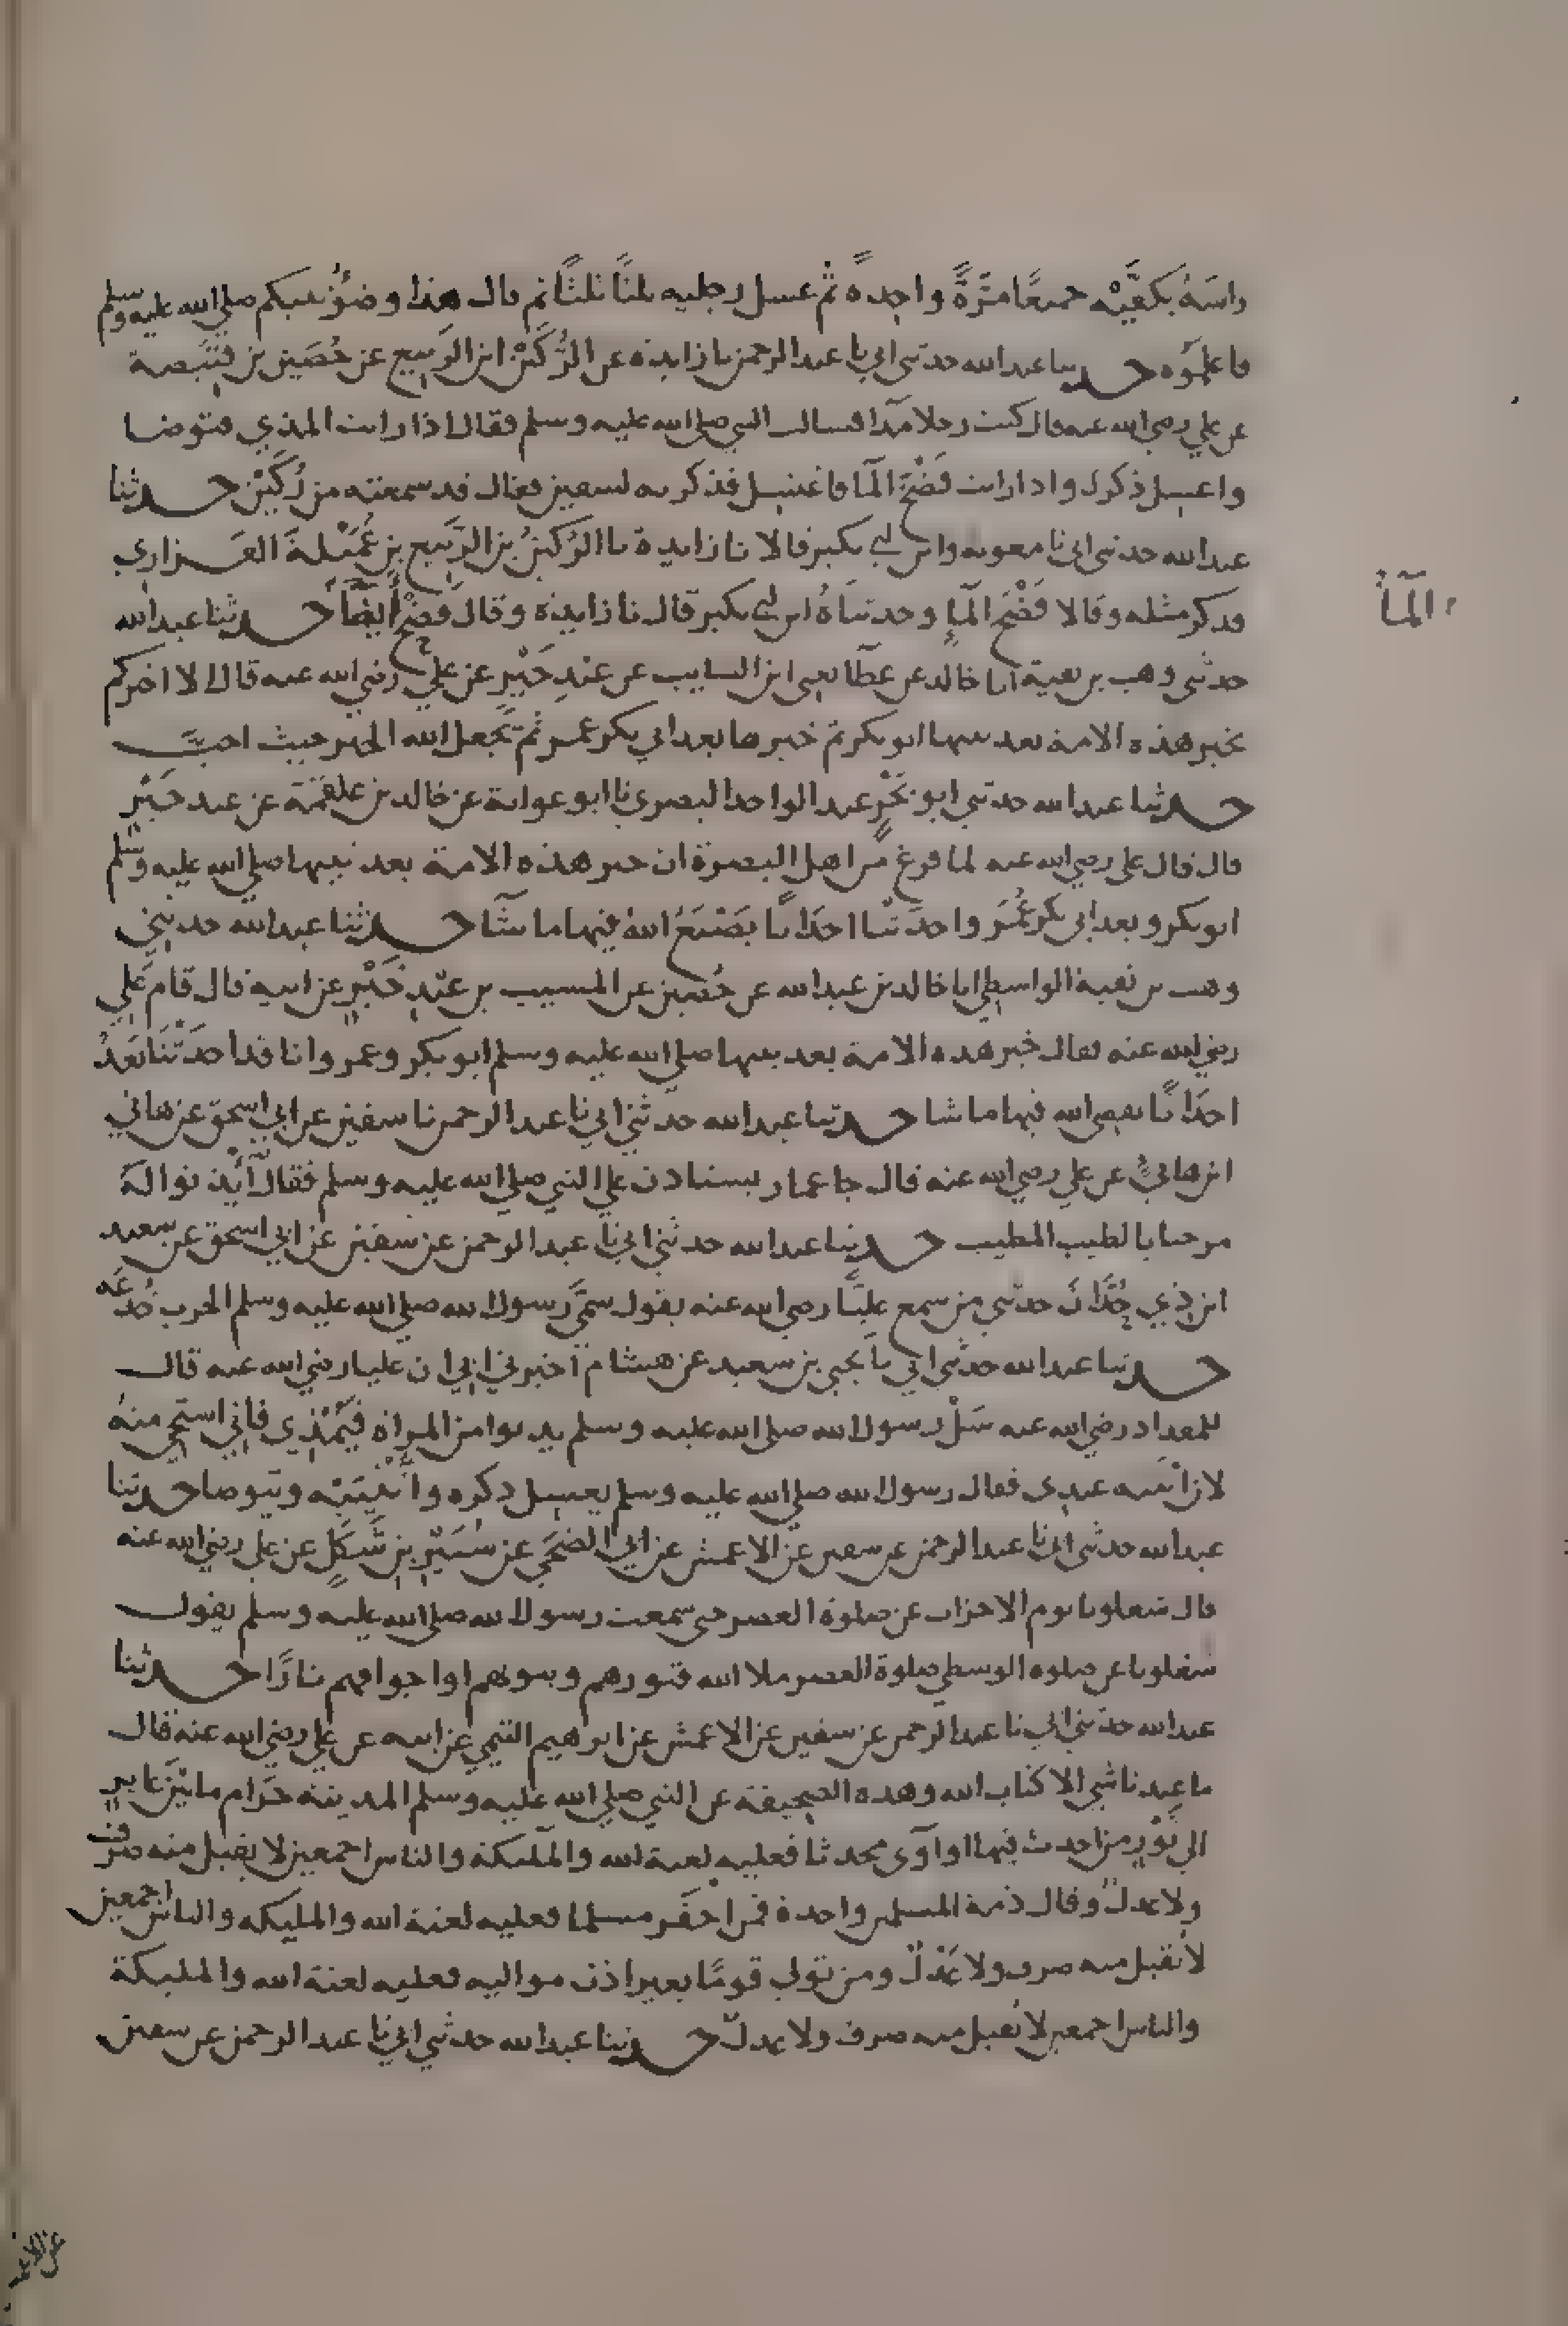 راسَهُ بكفَّيْه جميعًا مرَّةً واحدةً ثم غسل رجليه ثلثًا ثلثًا ثم قال هذا وضوُ نبيكم صلى الله عليه وسلم
فاعلموه حدثنا عبد الله حدثني ابي نا عبد الرحمن نا زايدة عن الرُّكَيْن ابن الرَبيع عن حُصَين بن قبيصة
عن علي رضي الله عنه قال كنت رجلا مذّا فسالت النبي صلى الله عليه وسلم فقال اذا رايت المذي فتوضا
واغسل ذكرك واذا رايت فَضْخَ المآ فاغتسل فذكرته لسفين فقال قد سمعته من رُكَيْن حدثنا
عبد الله حدثني ابي نا معوية وابن ابي بكير قالا نا زايدة نا الرُكينُ بن الرَّبيع بن عُمَيْلةَ الفزاري
فذكر مثله وقالا فَضْخَ المآءِ وحدثناهُ ابن ابي بكير قال نا زايدة وقال فضخ ايضًا حدثنا عبد الله
المآُ
حدثني وهب بن بقية انا خالد عن عطآ يعني ابن السايب عن عَبْدِ خَيْرٍ عن علي رضي الله عنه قال الا اخبركم
بخير هذه الامة بعد نبيها ابو بكر ثم خيرها بعد ابي بكر عمر ثم يجعل الله الخير حيث احبّ
حدثنا عبد الله حدثني ابو بَحْرٍ عبد الواحد البصري نا ابو عوانة عن خالد بن علقمة عن عبد خَيْرٍ
قال قال علي رضي الله عنه لما فرغ من اهل البصرة ان خير هذه الامة بعد نبيها صلى الله عليه وسلم
ابو بكر وبعد ابي بكر عُمَر واحدَثنا احداثًا يَصْنَعُ اللهُ فيها ما شآ حدثنا عبد الله حدثني
وهب بن بقية الواسطي انا خالد بن عبد الله عن حُصين عن المسيب بن عَبْدِ خَيْرٍ عن ابيه قال قام علي
رضي الله عنه فقال خير هذه الامة بعد نبيها صلى الله عليه وسلم ابو بكر وعمر وانا قد احدَثْنا بَعْدُ
احداثًا يقضي الله فيها ما شا حدثنا عبد الله حدثني ابي نا عبد الرحمن نا سفين عن ابي اسحق عن هاني
ابن هانئٍ عن علي رضي الله عنه قال جا عمار يستاذن على النبي صلى الله عليه وسلم فقال آئذنوا له
مرحبا بالطيب المطيب حدثنا عبد الله حدثني ابي نا عبد الرحمن عن سفين عن ابي اسحق عن سعيد
ابن ذي حُدَّان حدثني من سمع عليًّا رضي الله عنه يقول سمَّى رسول الله صلى الله عليه وسلم الحرب خُدعَه
حدثنا عبد الله حدثني ابي نا يحيى بن سعيد عن هشام اخبرني ابي ان عليا رضي الله عنه قال
للمقداد رضي الله عنه سَلْ رسول الله صلى الله عليه وسلم يدنوا من المراة فيَمْذي فاني استحي منهُ
لان ابنته عندي فقال رسول الله صلى الله عليه وسلم يغسل ذكره وأُنْثَيَيْه ويتوضا حدثنا
عبد الله حدثني ابي نا عبد الرحمن عن سفين عن الاعمش عن ابي الضحَى عن شُتَيْرِ بن شَكَلٍ عن علي رضي الله عنه
قال شغلونا يوم الاحزاب عن صلوة العصر حتى سمعت رسول الله صلى الله عليه وسلم يقول
شغلونا عن صلوة الوسطى صلوة العصر ملا الله قبورهم وبيوتهم او اجوافهم نارًا حدثنا
عبد الله حدثني ابي نا عبد الرحمن عن سفين عن الاعمش عن ابرهيم التيمي عن ابيه عن علي رضي الله عنه قال
ما عندنا شي الا كتاب الله وهذه الصحيفة عن النبي صلى الله عليه وسلم المدينة حَرَام ما بَيْن عايرٍ
الى ثَوْرٍ من احدث فيها او آوى محدثا فعليه لعنة الله والملىكة والناس اجمعين لا يقبل منه صرف
ولا عدل وقال ذمة المسلمين واحدة فمن اخفَر مسلما فعليه لعنة الله والمليكه والناس اجمعين
لا يُقبل منه صرف ولا عَدْلٌ ومن تولى قومًا بغير اذن مواليه فعليه لعنة الله والمليكة
والناس اجمعين لا يُقبل منه صرف ولا عدل حدثنا عبد الله حدثني ابي نا عبد الرحمن عن سفين
عن الاعمش